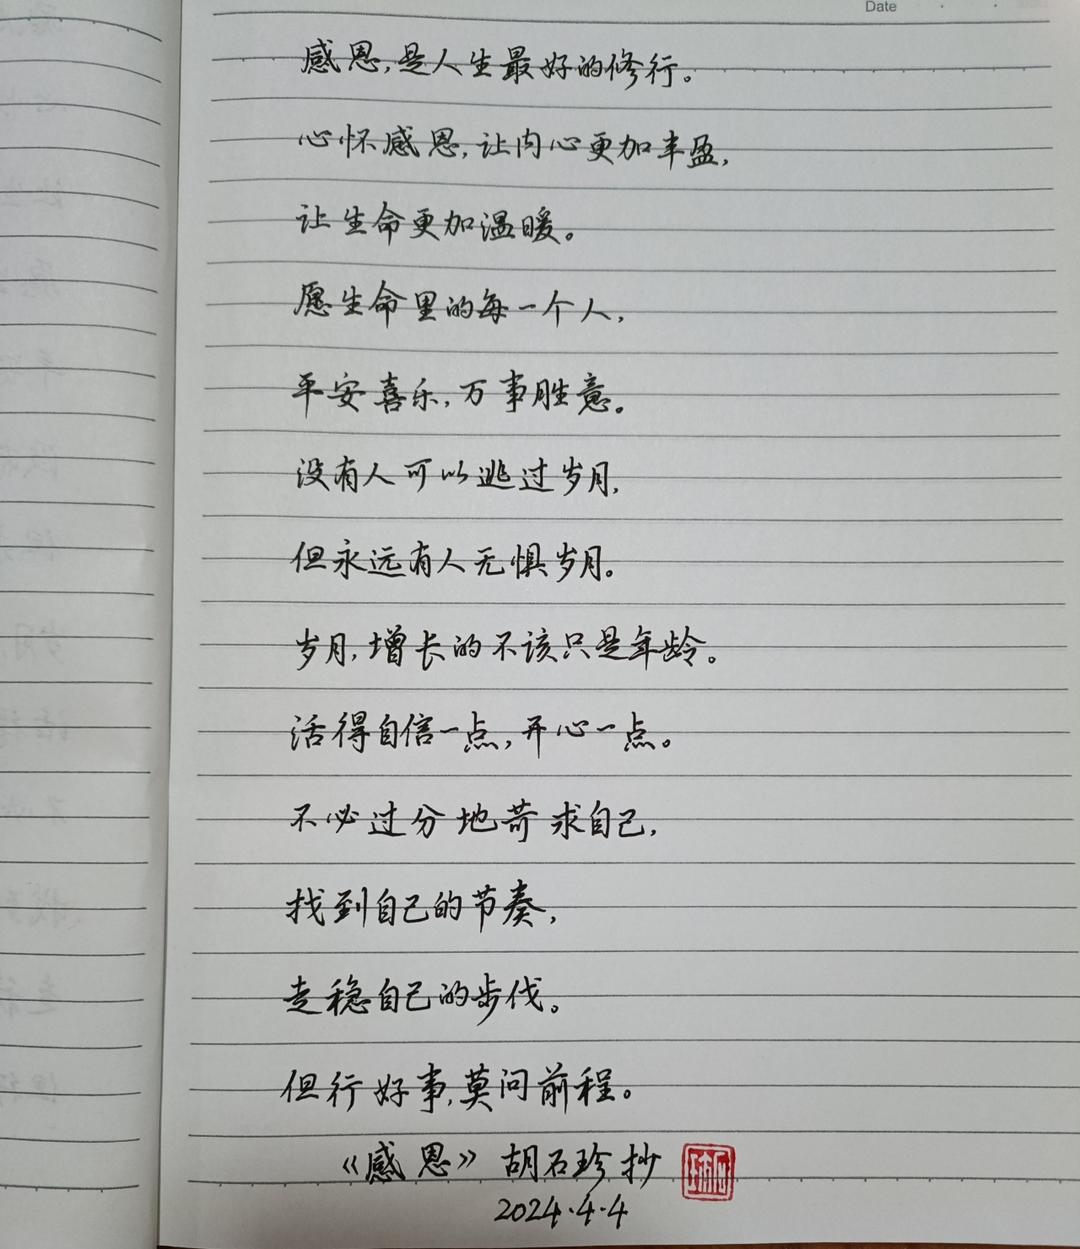 Date
感恩,是人生最好的修行。
心怀感恩,让内心更加丰盈,
让生命更加温暖。
愿生命里的每一个人,
平安喜乐,万事胜意。
没有人可以逃过岁月,
但永远有人无惧岁月。
岁月,增长的不该只是年龄。
活得自信一点,开心一点。
不必过分地苛求自己,
找到自己的节奏,
走稳自己的步伐。
但行好事,莫问前程。
《感恩》胡石珍抄
2024.4.4